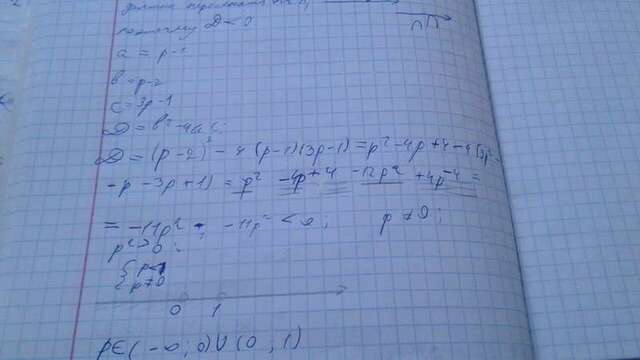 поэтому D < 0
a = p-1
b = p-2
c = 3p-1
D = b²-4ac;
D = (p-2)² - 4(p-1)(3p-1) = p²-4p+4-4(3p²-
-p-3p+1) = p² -4p+4 -12p² +4p-4 =
= -11p²; -11p² < 0; p ≠ 0;
p² > 0;
{ p<1
{ p≠0
0 1
p∈(-∞;0)∪(0;1)